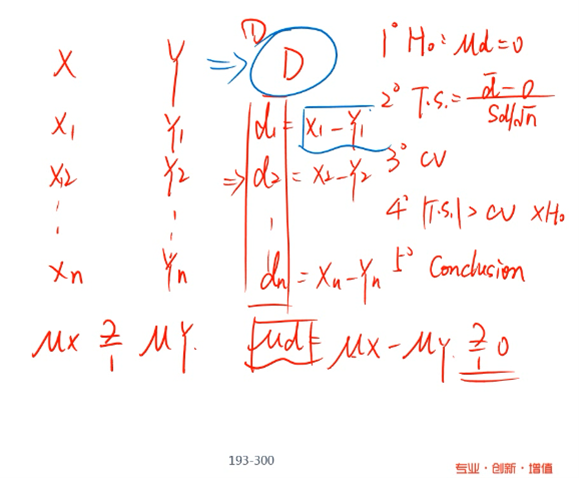 X Y ⇒ D D
X₁ Y₁ d₁ = X₁ - Y₁
X₂ Y₂ ⇒ d₂ = X₂ - Y₂
⋮ ⋮ ⋮
Xn Yn dn = Xn - Yn
μX ≟ μY. μd = μX - μY ≟ 0
1° H₀: μd = 0
2° T.S. = (d̄ - 0) / (Sd/√n)
3° CV
4° |T.S.| > CV ×H₀
5° Conclusion
193-300
专业·创新·增值